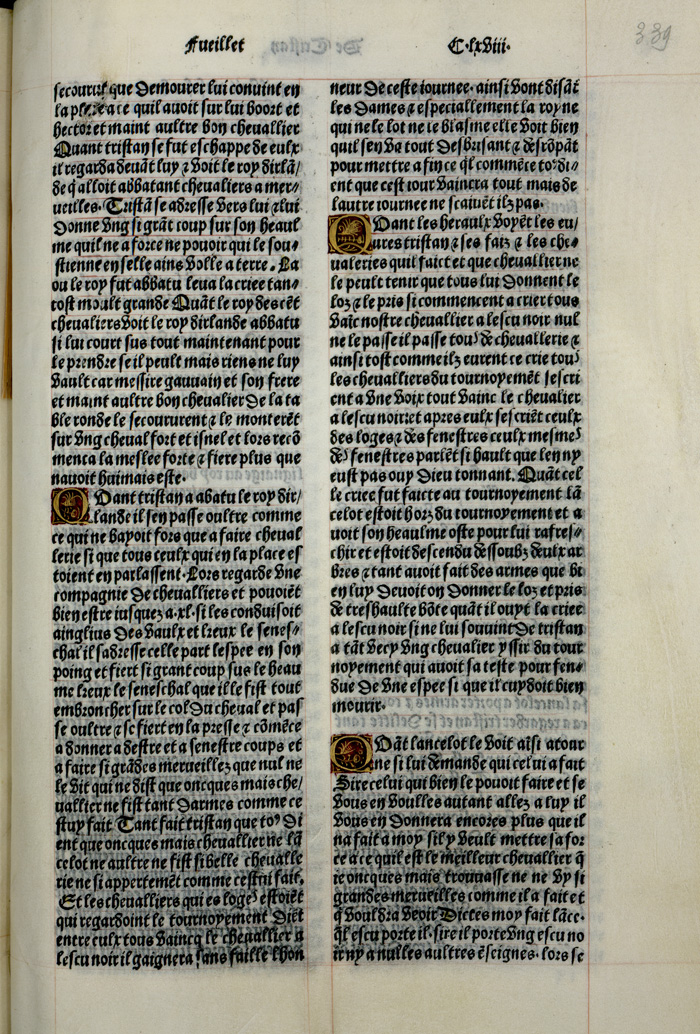 Fueillet C.lxviii. 339
secourut que demourer lui conuint en
la place ce quil auoit sur lui boort et
hector et maint aultre bon cheuallier
Quant tristan se fut eschappe de eulx
il regarda deuāt luy ⁊ voit le roy dirlā/
de q̄ alloit abbatant cheualiers a mer⸗
ueilles. Tristā se adresse vers lui ⁊ lui
donne vng si grāt coup sur son heaul
me quil ne a force ne pouoir qui le sou⸗
stienne en selle ains volle a terre. La
ou le roy fut abbatu leua la criee tan⸗
tost moult grande Quāt le roy des cēt
cheualiers voit le roy dirlande abbatu
si lui court sus tout maintenant pour
le prendre se il peult mais riens ne luy
vault car messire gauuain et son frere
et maint aultre bon cheualier de la ta
ble ronde le secoururent ⁊ le monterēt
sur vng cheual fort et isnel et lors recō
menca la meslee forte ⁊ fiere plus que
nauoit huimais este.
Quant tristan a abatu le roy dir/
lande il sen passe oultre comme
ce qui ne bayoit fors que a faire cheual
lerie si que tous ceulx qui en la place es
toient en parlassent. Lors regarde vne
compagnie de cheualliers et pouoiēt
bien estre iusquez a .xl. si les conduisoit
ainglius des vaulx et kreux le senes⸗
chal il sadresse celle part lespee en son
poing et fiert si grant coup sus le heau
me kreux le seneschal que il le fist tout
embroncher sur le col du cheual et pas
se oultre ⁊ se fiert en la presse ⁊ cōmēce
a donner a destre et a senestre coups et
a faire si grādes merueillez que nul ne
le vit qui ne dist que oncques mais che/
uallier ne fist tant darmes comme ce
stuy fait Tant fait tristan que toꝰ di
ent que oncques mais cheuallier ne lā
celot ne aultre ne fist si belle cheualle
rie ne si appertemēt comme cestui fait.
Et les cheualliers qui es logeˢ estoiēt
qui regardoint le tournoyement diēt
entre eulx tous vaincq le cheuallier a
lescu noir il gaignera sans faille lhon
neur de ceste iournee. ainsi vont disāt
les dames ⁊ especiallement la royne
qui ne le lot ne le blasme elle voit bien
quil sen va tout desbrisant ⁊ desrōpāt
pour mettre a fin ce q̄l commēce toꝰ di⸗
ent que cest iour vaincra tout mais de
lautre iournee ne scaiuēt ilz pas.
Quant les heraulx voyēt les eu/
ures tristan ⁊ ses faiz ⁊ les che⸗
ualeries quil faict et que cheuallier ne
le peult tenir que tous lui donnent le
loz ⁊ le pris si commencent a crier tous
vaīc nostre cheuallier a lescu noir nul
ne le passe il passe toꝰ de cheuallerie ⁊
ainsi tost comme ilz eurent ce crie toꝰ
les cheualliers du tournoyemēt sescri
ent a vne voix tout vainc le cheualier
a lescu noir et apres eulx sescriēt ceulx
des loges ⁊ des fenestres ceulx mesmeˢ
des fenestres parlēt si hault que len ny
eust pas ouy dieu tonnant. Quāt cel
le criee fut faicte au tournoyement lā
celot estoit hors du tournoyement et a
uoit son heaulme oste pour lui rafres⸗
chir et estoit descendu dessoubz deulx ar
bres ⁊ tant auoit fait des armes que bi
en luy deuoit on donner le loz et pris
de treshaulte bōte quāt il ouyt la criee
a lescu noir si ne lui souuint de tristan
a tāt vecy vng cheualier yssir du tour
noyement qui auoit sa teste pour fen⸗
due de vne espee si que il cuydoit bien
mourir.
Quāt lancelot le voit aīsi atour
ne si lui demande qui celui a fait
Sire celui qui bien le pouoit faire et se
vous en voulles autant allez a luy il
vous en donnera encores plus que il
na fait a moy sil y veult mettre sa for
ce a ce quil est le meilleur cheuallier q̄
ie oncques mais trouuasse ne ne vy si
grandes merueilles comme il a fait et
q̄ vouldra veoir Dictes moy fait lāce.
q̄l escu porte il. sire il porte vng escu no
ir ny a nulles aultres ēseignes. lors se